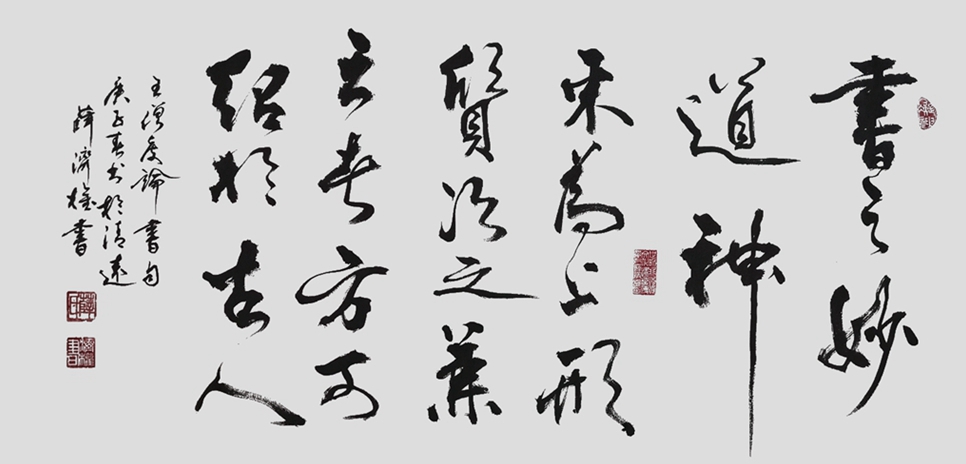 書之妙
道神
采為上形
質次之兼
之者方可
紹於古人
王僧虔論書句
庚子春书於清遠
薛濟書